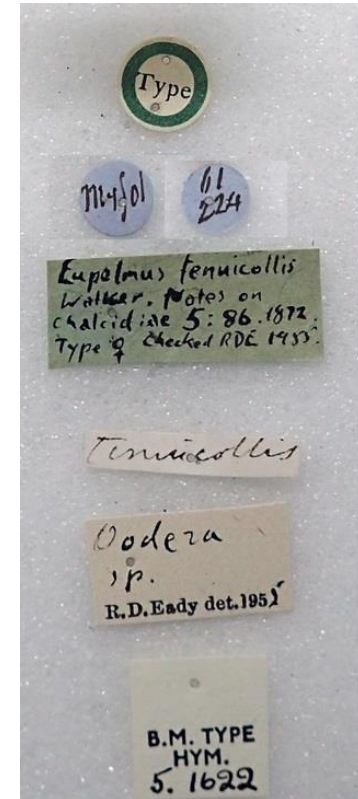 Type
Mysol
61
224
Eupelmus tennicollis
Walker. Notes on
chalcidiae 5: 86. 1872.
Type ♀ Checked RDE 1955.
Tennicollis
Oodera
sp.
R.D.Eady det.1955
B.M. TYPE
HYM.
5. 1622